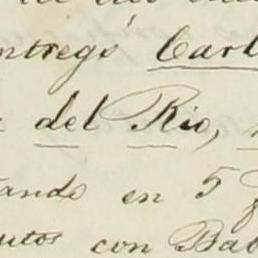 ntregó Carl
del Rio,
tando en 5
utos con Bab